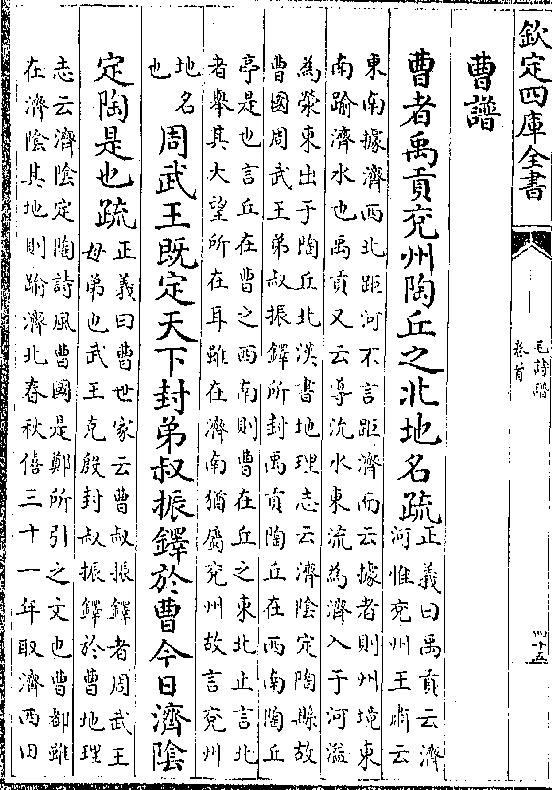 欽定四庫全書
毛詩譜
卷首
四十五
曹譜
曹者禹貢兗州陶丘之北地名疏
正義曰禹貢云濟
河惟兗州王肅云
東南據濟西北距河不言距濟而云據者則州境東
南踰濟水也禹貢又云導沇水東流為濟入于河溢
為滎東出于陶丘北漢書地理志云濟陰定陶縣故
曹國周武王弟叔振鐸所封禹貢陶丘在西南陶丘
亭是也言丘在曹之西南則曹在丘之東北止言北
者舉其大望所在耳雖在濟南猶屬兗州故言兗州
地名
也
周武王既定天下封弟叔振鐸於曹今日濟陰
定陶是也疏
正義曰曹世家云曹叔振鐸者周武王
母弟也武王克殷封叔振鐸於曹地理
志云濟陰定陶詩風曹國是鄭所引之文也曹都雖
在濟陰其地則踰濟北春秋僖三十一年取濟西田